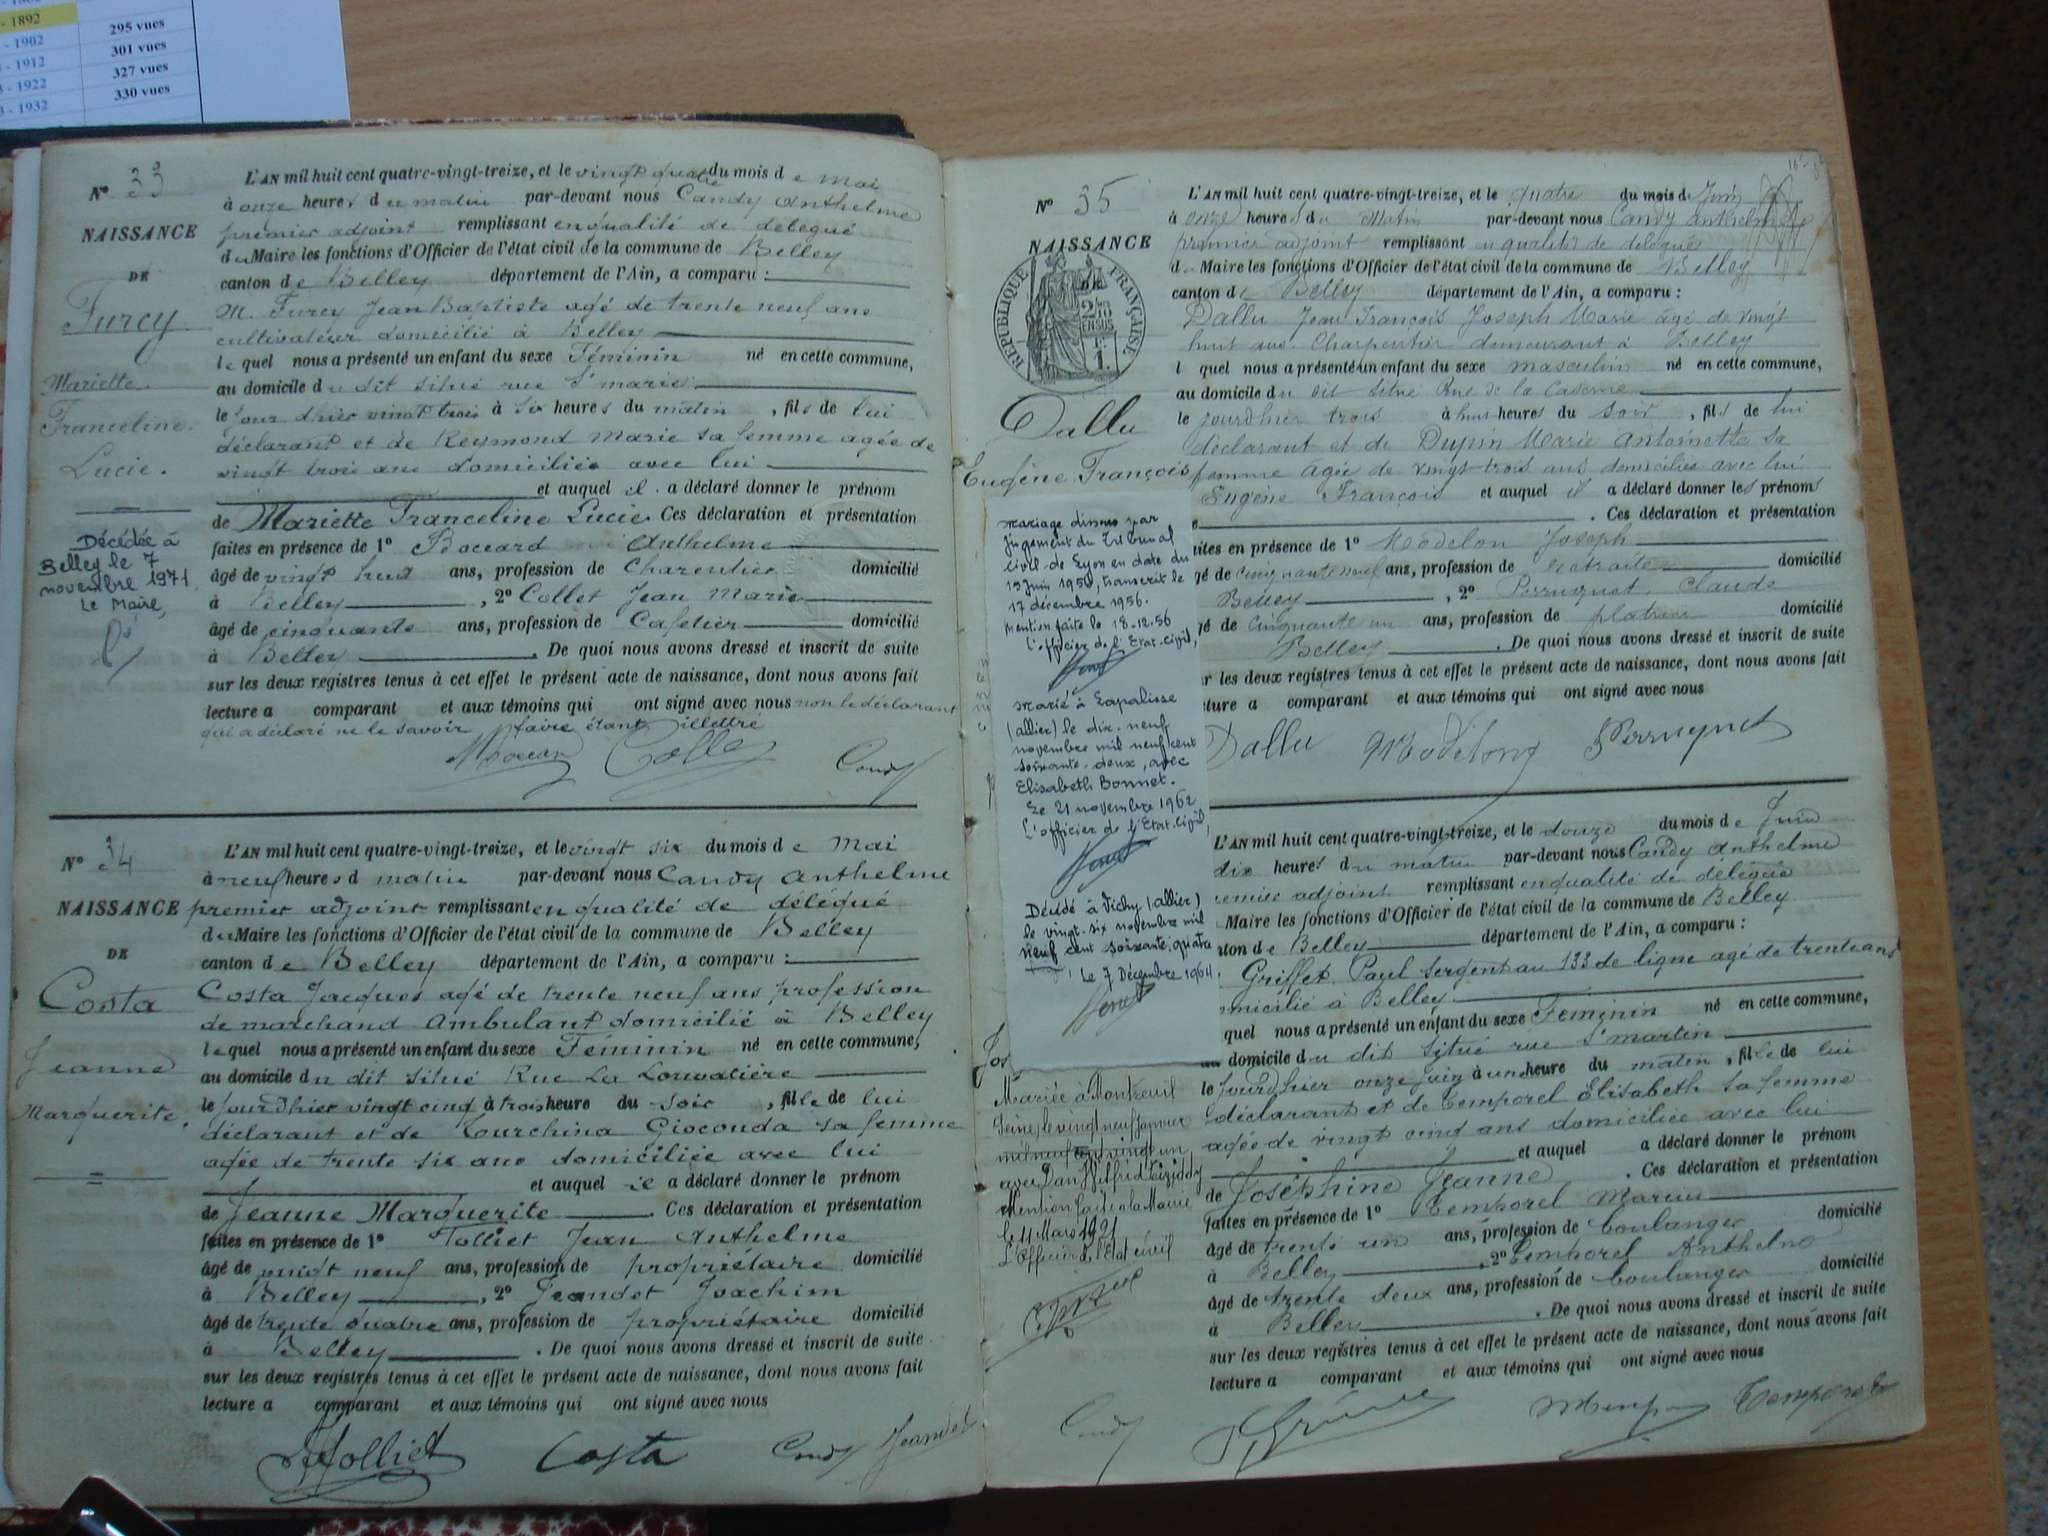 - 1892
- 1902
- 1912
- 1922
- 1932
295 vues
301 vues
327 vues
330 vues
N° 33
NAISSANCE
DE
Furcy
Mariette
Franceline
Lucie.
Décédée à
Belley le 7
novembre 1971
Le Maire,
L'AN mil huit cent quatre-vingt-treize, et le vingt quatre du mois de mai
à onze heures du matin par-devant nous Candy Anthelme
premier adjoint remplissant en qualité de délégué
du Maire les fonctions d'Officier de l'état civil de la commune de Belley
canton de Belley département de l'Ain, a comparu :
M. Furcy Jean Baptiste agé de trente neuf ans
cultivateur domicilié à Belley
lequel nous a présenté un enfant du sexe Féminin né en cette commune,
au domicile du dit situé rue St marie
le jour dhier vingt trois à six heures du matin, fils de lui
déclarant et de Reymond Marie sa femme agée de
vingt trois ans domiciliée avec lui
et auquel il a déclaré donner le prénom
de Mariette Franceline Lucie. Ces déclaration et présentation
faites en présence de 1° Boccard Anthelme
âgé de vingt huit ans, profession de Charentier domicilié
à Belley, 2° Collet Jean Marie
âgé de cinquante ans, profession de Cafetier domicilié
à Belley. De quoi nous avons dressé et inscrit de suite
sur les deux registres tenus à cet effet le présent acte de naissance, dont nous avons fait
lecture a comparant et aux témoins qui ont signé avec nous non le déclarant
qui a déclaré ne le savoir faire étant illettré
N° 34
NAISSANCE
DE
Costa
Jeanne
Marguerite.
L'AN mil huit cent quatre-vingt-treize, et le vingt six du mois de Mai
à neuf heures d matin par-devant nous Candy Anthelme
premier adjoint remplissant en qualité de délégué
du Maire les fonctions d'Officier de l'état civil de la commune de Belley
canton de Belley département de l'Ain, a comparu :
Costa Jacques agé de trente neuf ans profession
de marchand Ambulant domicilié à Belley
lequel nous a présenté un enfant du sexe Féminin né en cette commune,
au domicile du dit situé Rue La Louvatière
le jourdhier vingt cinq à trois heure du soir, fille de lui
déclarant et de Tourchina Gioconda sa femme
agée de trente six ans domiciliée avec lui
et auquel il a déclaré donner le prénom
de Jeanne Marguerite. Ces déclaration et présentation
faites en présence de 1° Tolliet Jean Anthelme
âgé de vingt neuf ans, profession de propriétaire domicilié
à Belley, 2° Jeandet Joachim
âgé de trente quatre ans, profession de propriétaire domicilié
à Belley. De quoi nous avons dressé et inscrit de suite
sur les deux registres tenus à cet effet le présent acte de naissance, dont nous avons fait
lecture a comparant et aux témoins qui ont signé avec nous
Tolliet Costa Candy Jeandet
N° 35
NAISSANCE
RÉPUBLIQUE FRANÇAISE
2/10 EN SUS
Dallu
Eugène François
L'AN mil huit cent quatre-vingt-treize, et le quatre du mois d Juin
à onze heures du Matin par-devant nous Candy anthelme
premier adjoint remplissant en qualité de délégué
du Maire les fonctions d'Officier de l'état civil de la commune de Belley
canton de Belley département de l'Ain, a comparu :
Dallu Jean François Joseph Marie âgé de vingt
huit ans Charpentier demeurant à Belley
l quel nous a présenté un enfant du sexe masculin né en cette commune,
au domicile du dit situé Rue de la Caserne
le jourdhier trois à huit heures du soir, fils de lui
déclarant et de Dupin Marie Antoinette sa
femme agée de vingt-trois ans domiciliée avec lui
Eugène François et auquel il a déclaré donner les prénoms
. Ces déclaration et présentation
aites en présence de 1° Modelon Joseph
gé de cinquante neuf ans, profession de retraité domicilié
Belley, 2° Perruquet Claude
gé de cinquante un ans, profession de platrier domicilié
Belley. De quoi nous avons dressé et inscrit de suite
r les deux registres tenus à cet effet le présent acte de naissance, dont nous avons fait
cture a comparant et aux témoins qui ont signé avec nous
Dallu Modelon Perruquet
mariage dissous par
jugement du Tribunal
civil de Lyon en date du
17 décembre 1956.
Mention faite le 18-12-56
l'officier de l'Etat-Civil,
Marié à Lapalisse
(allier) le dix-neuf
novembre mil neuf cent
soixante-deux, avec
Elisabeth Bonnet.
Le 21 novembre 1962
L'officier de l'Etat-Civil,
Décédé à Vichy (allier)
le vingt-six novembre mil
neuf cent soixante-quatre
Le 7 Décembre 1964.
Jos
Mariée à Montreuil
Seine, le vingt neuf Janvier
mil neuf cent vingt un
avec Dan Wilfrid
Mention faite à la Mairie
le 11 Mars 1921
L'Officier de l'état civil
L'AN mil huit cent quatre-vingt-treize, et le douze du mois de Juin
dix heures du matin par-devant nous Candy Anthelme
remier adjoint remplissant en qualité de délégué
Maire les fonctions d'Officier de l'état civil de la commune de Belley
nton de Belley département de l'Ain, a comparu :
Griffet Paul sergent au 133 de ligne agé de trente ans
micilié à Belley
quel nous a présenté un enfant du sexe Feminin né en cette commune,
au domicile du dit situé rue St martin
le jourdhier onze Juin à une heure du matin, fille de lui
déclarant et de Temporel Elisabeth sa femme
agée de vingt cinq ans domiciliée avec lui
et auquel a déclaré donner le prénom
de Joséphine Jeanne. Ces déclaration et présentation
faites en présence de 1° Temporel Marius
âgé de trente un ans, profession de boulanger domicilié
à Belley, 2° Temporel Anthelme
âgé de trente deux ans, profession de boulanger domicilié
à Belley. De quoi nous avons dressé et inscrit de suite
sur les deux registres tenus à cet effet le présent acte de naissance, dont nous avons fait
lecture a comparant et aux témoins qui ont signé avec nous
Candy Temporel